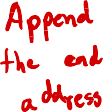 Append
the end
address